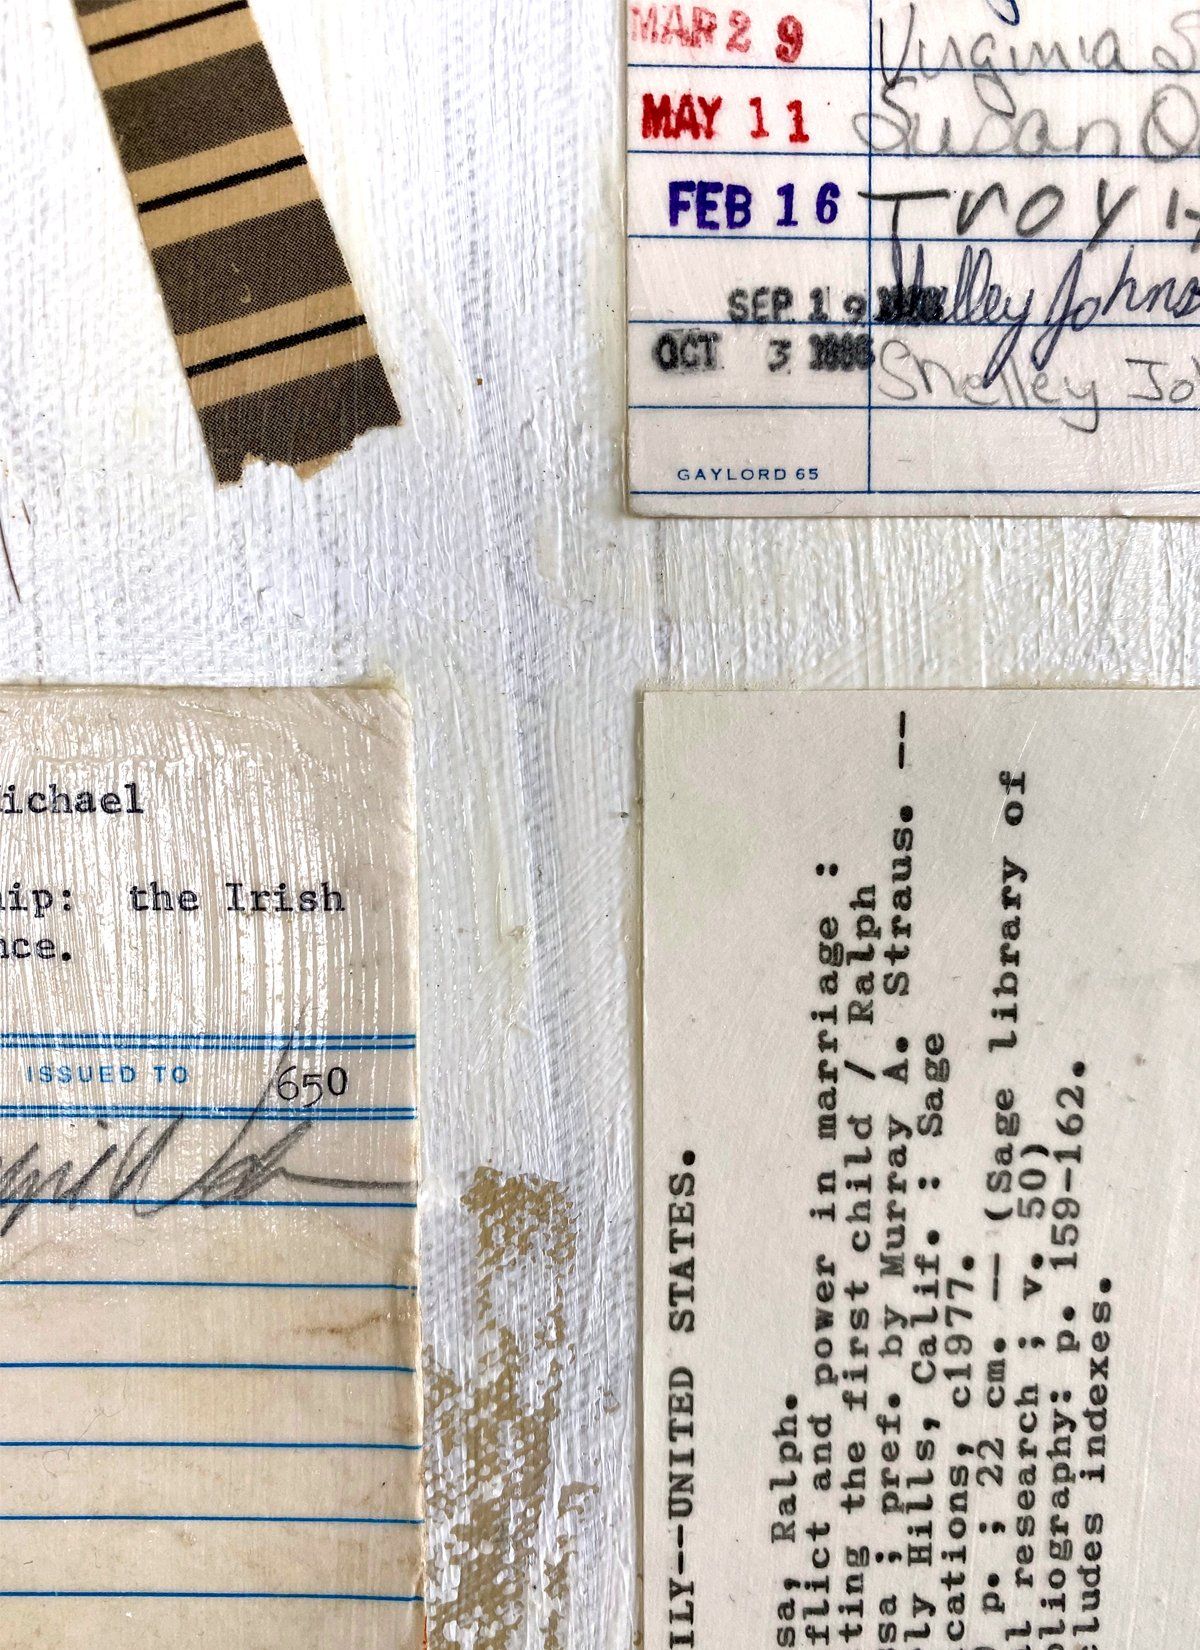 MAR 29 Virginia S
MAY 11 Susan O
FEB 16 Troy H
SEP 19 Shelley Johns
OCT 3 1986 Shelley Jo
GAYLORD 65
ichael
ip: the Irish
nce.
ISSUED TO 650
ILY--UNITED STATES.
sa, Ralph.
flict and power in marriage :
ting the first child / Ralph
ssa ; pref. by Murray A. Straus. --
ly Hills, Calif. : Sage
cations, c1977.
p. ; 22 cm. -- (Sage library of
l research ; v. 50)
liography: p. 159-162.
ludes indexes.